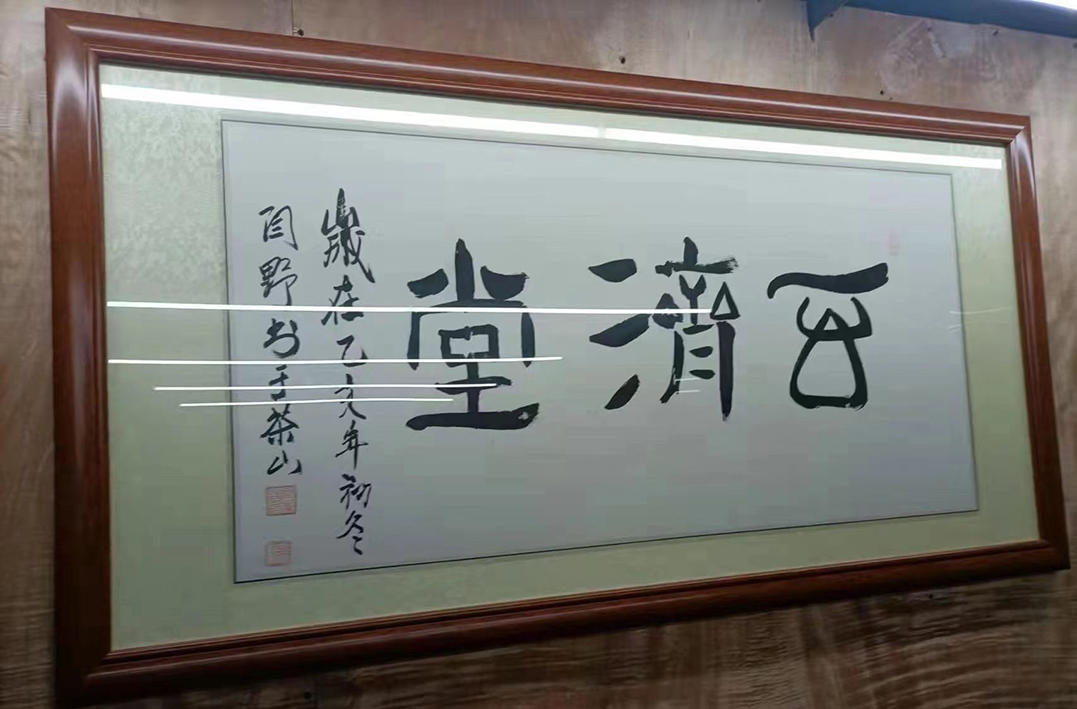 百濟堂
歲在乙亥年初冬
闫野书于茶山